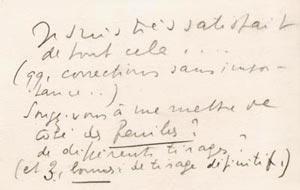 Je suis très satisfait
de tout cela . . . .
(qq. corrections sans impor-
tance . .)
Songez-vous à me mettre de
côté des feuilles ?
de différents tirages ?
(et 3, bonnes de tirage définitif.)